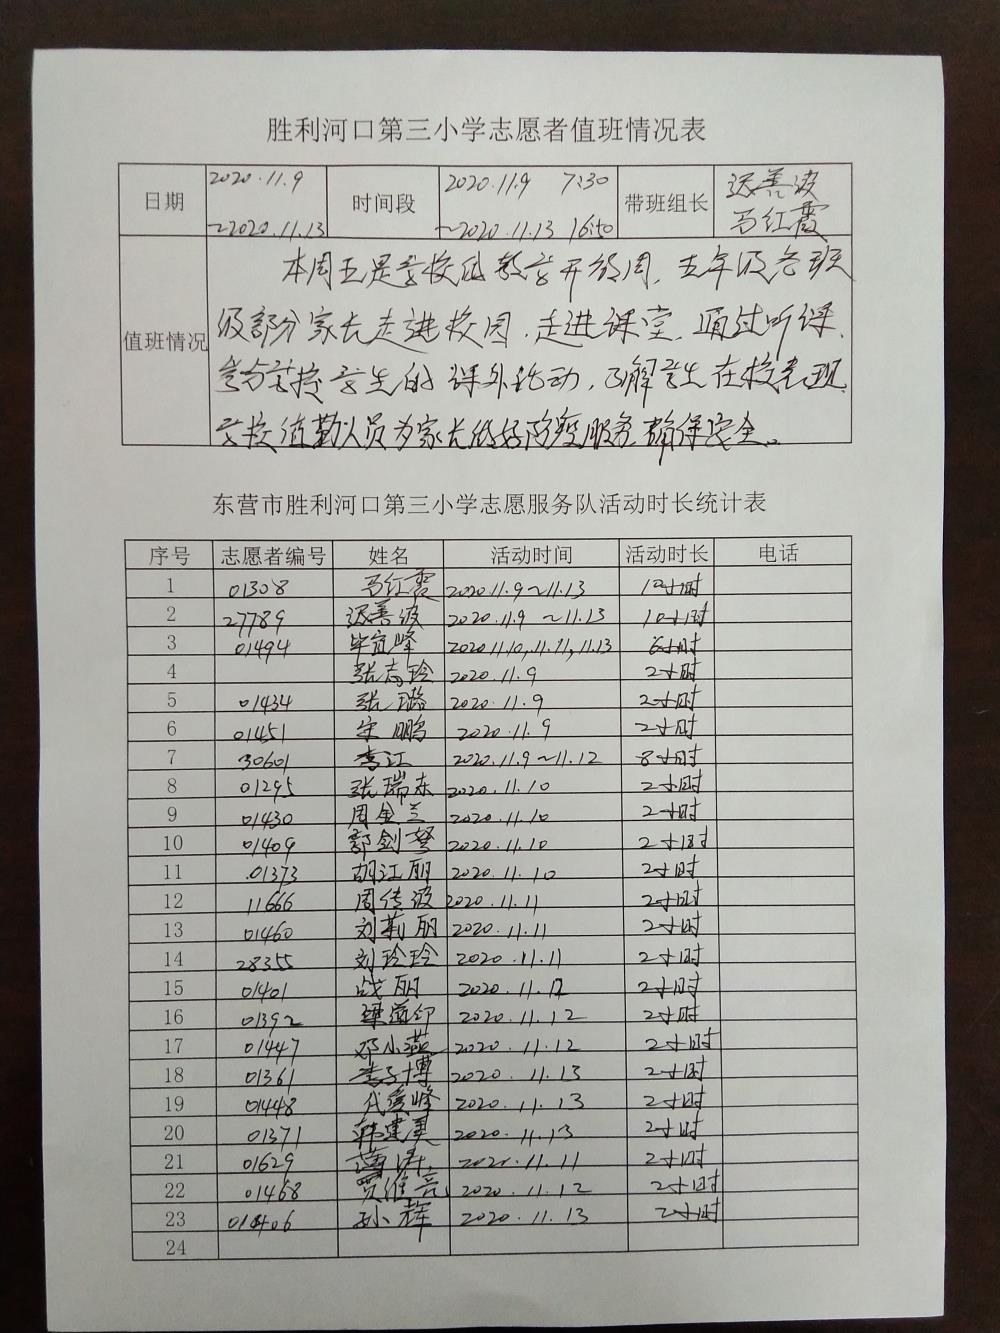 胜利河口第三小学志愿者值班情况表
日期 2020.11.9 ~2020.11.13 时间段 2020.11.9 7:30 ~2020.11.13 16:50 带班组长 迟善波 马红霞
值班情况
本周五是学校的教学开放周，五年级各班
级部分家长走进校园，走进课堂，通过听课、
学生的课外活动，了解学生在校表现
学校值勤人员为家长做好防疫服务 确保安全。
东营市胜利河口第三小学志愿服务队活动时长统计表
序号 志愿者编号 姓名 活动时间 活动时长 电话
1 01308 马红霞 2020.11.9~11.13 10小时
2 27789 迟善波 2020.11.9 ~11.13 10小时
3 01494 毕宜峰 2020.11.10,11.11,11.13 6小时
4 张志玲 2020.11.9 2小时
5 01434 张璐 2020.11.9 2小时
6 01451 宋鹏 2020.11.9 2小时
7 30601 李江 2020.11.9~11.12 8小时
8 01295 张瑞东 2020.11.10 2小时
9 01430 周金兰 2020.11.10 2小时
10 01409 郭剑 2020.11.10 2小时
11 01373 胡江丽 2020.11.10 2小时
12 11666 周传波 2020.11.11 2小时
13 01460 刘莉丽 2020.11.11 2小时
14 28355 刘玲玲 2020.11.11 2小时
15 01401 战丽 2020.11.12 2小时
16 01392 2020.11.12 2小时
17 01447 邓小燕 2020.11.12 2小时
18 01361 李子博 2020.11.13 2小时
19 01448 代爱峰 2020.11.13 2小时
20 01371 韩建勇 2020.11.13 2小时
21 01629 薄涛 2020.11.11 2小时
22 01468 贾维亮 2020.11.12 2小时
23 01406 孙辉 2020.11.13 2小时
24